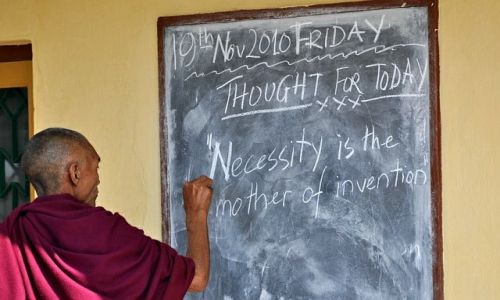 19th Nov 2010 FRIDAY
THOUGHT FOR TODAY
xxx
"Necessity is the
mother of invention